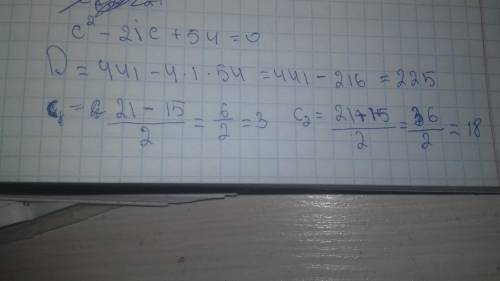 c² - 21c + 54 = 0
D = 441 - 4·1·54 = 441 - 216 = 225
c₁ = (21 - 15)/2 = 6/2 = 3 c₂ = (21+15)/2 = 36/2 = 18